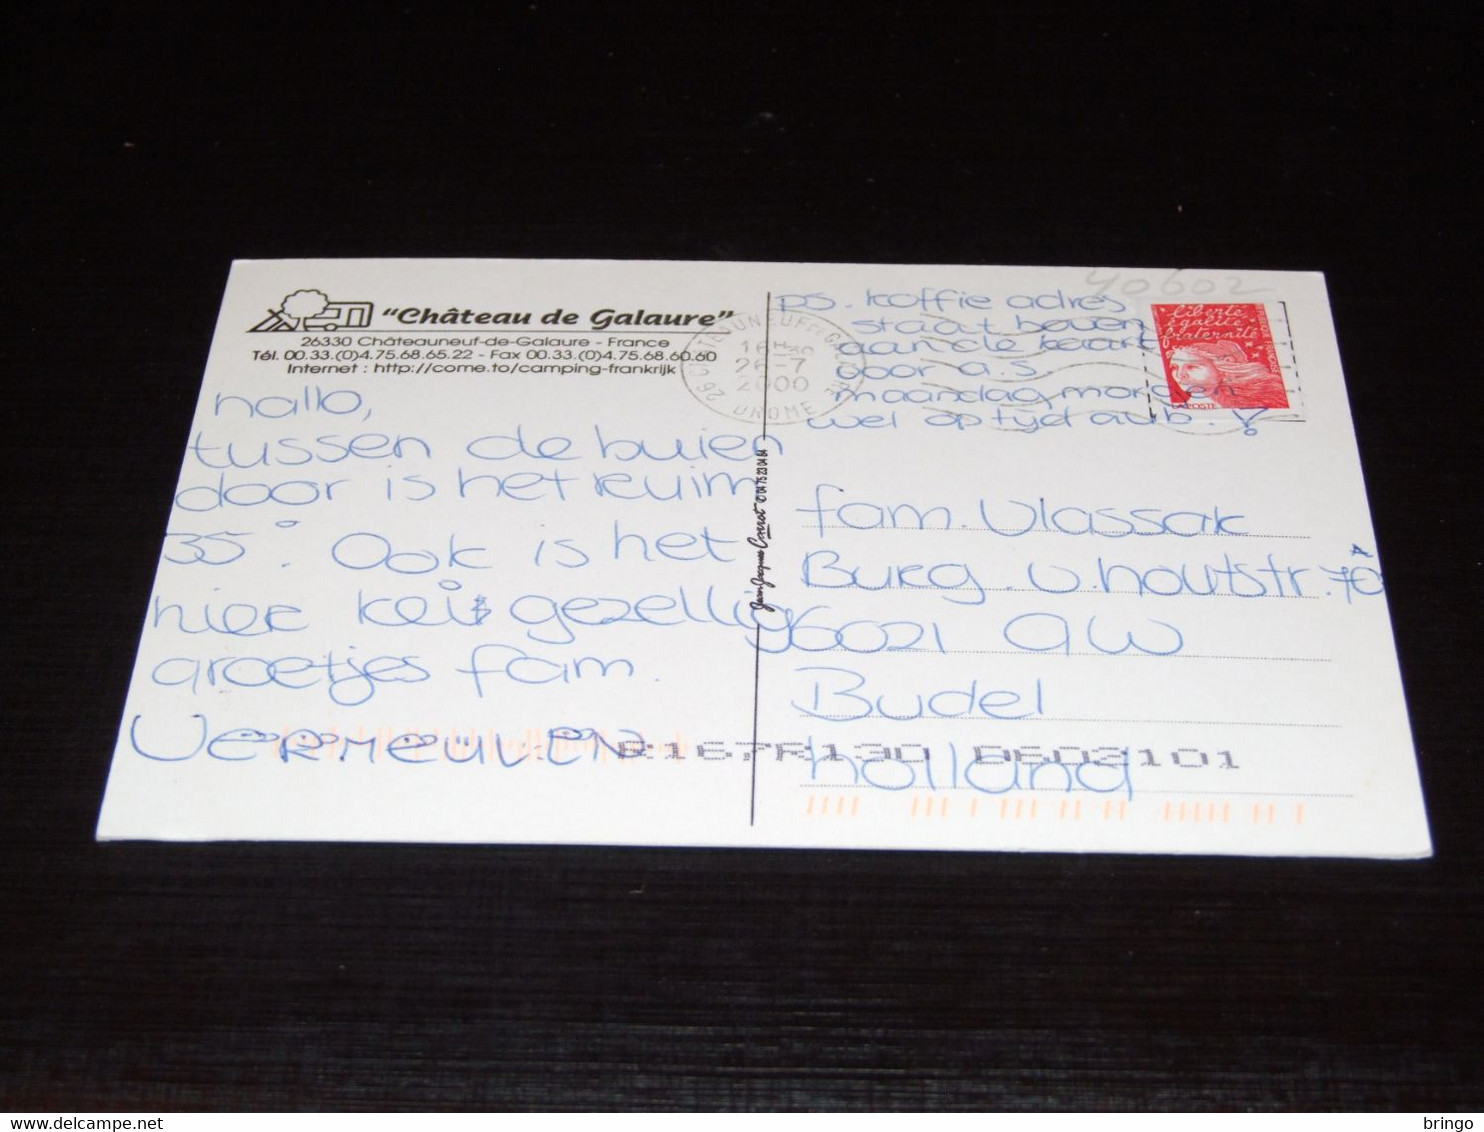 "Château de Galaure"
26330 Châteauneuf-de-Galaure - France
Tél. 00.33.(0)4.75.68.65.22 - Fax 00.33.(0)4.75.68.60.60
Internet : http://come.to/camping-frankrijk
hallo,
tussen de buien
door is het ruim
35°. Ook is het
hier kei gezellig
groetjes fam.
VERMEULEN
Jean-Jacques Carrot © 04 75 23 04 64
40602
ps. koffie adres
staat boven
aan de kaart
door a.s
maandag morgen
wel op tijd aub.!
26 CHATEAUNEUF DE GALAURE
16H30
26-7
2000
DROME
Liberté
égalité
fraternité
LA POSTE
fam. Vlassak
Burg. v. houtstr. 70 A
6021 GW
Budel
holland
R167R130 0602101
bringo